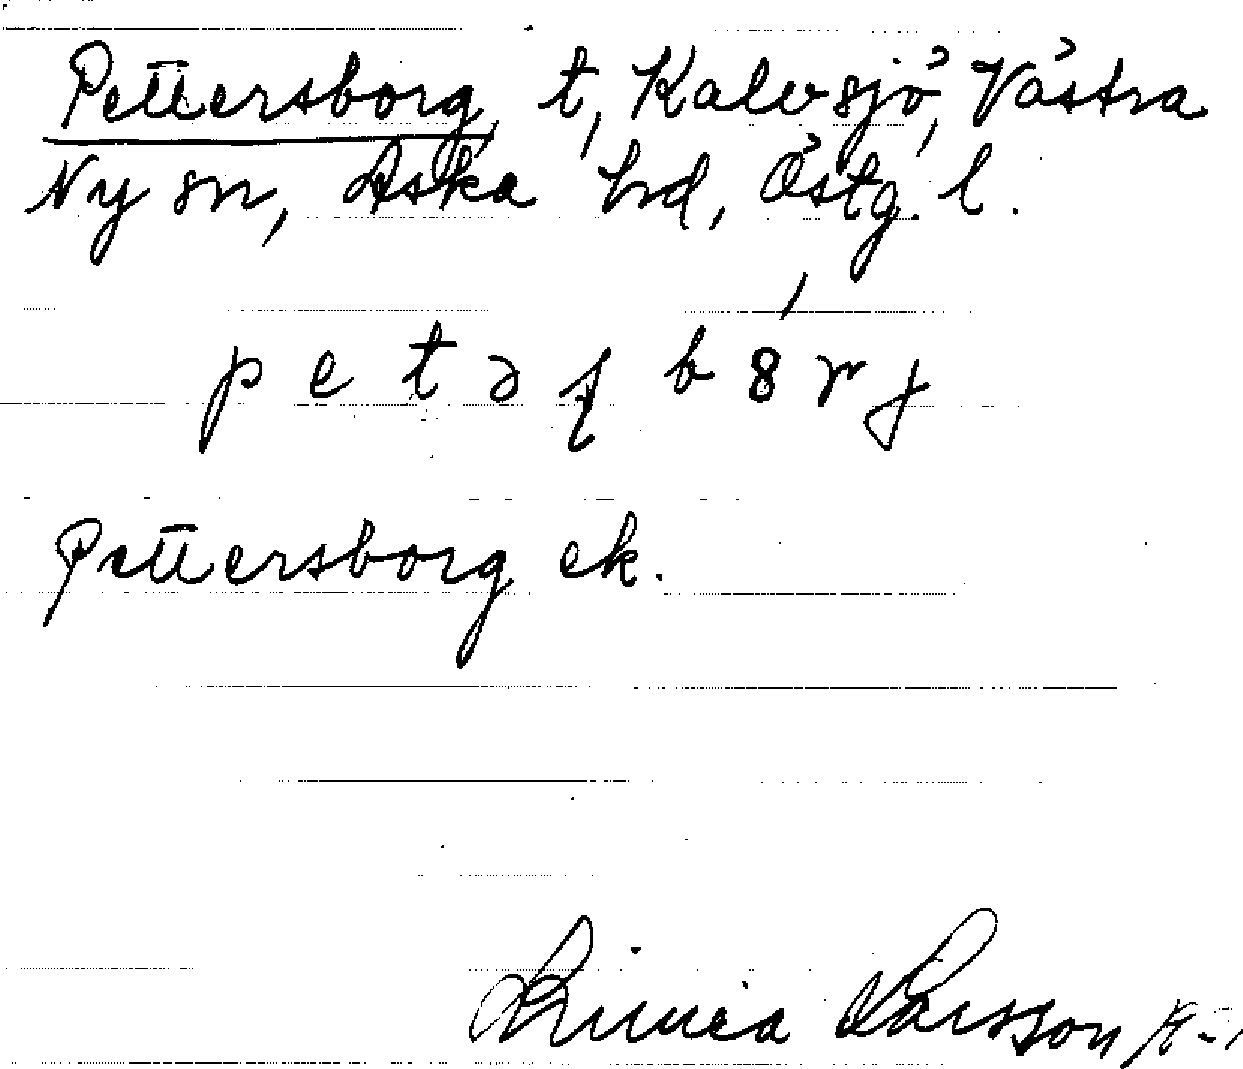 Pettersborg, t, Kalvsjö, Västra
Ny sn, Aska hd, Östg. l.
p e t ə ʂ b 8́ r j
Pettersborg ek.
Linnéa Larsson